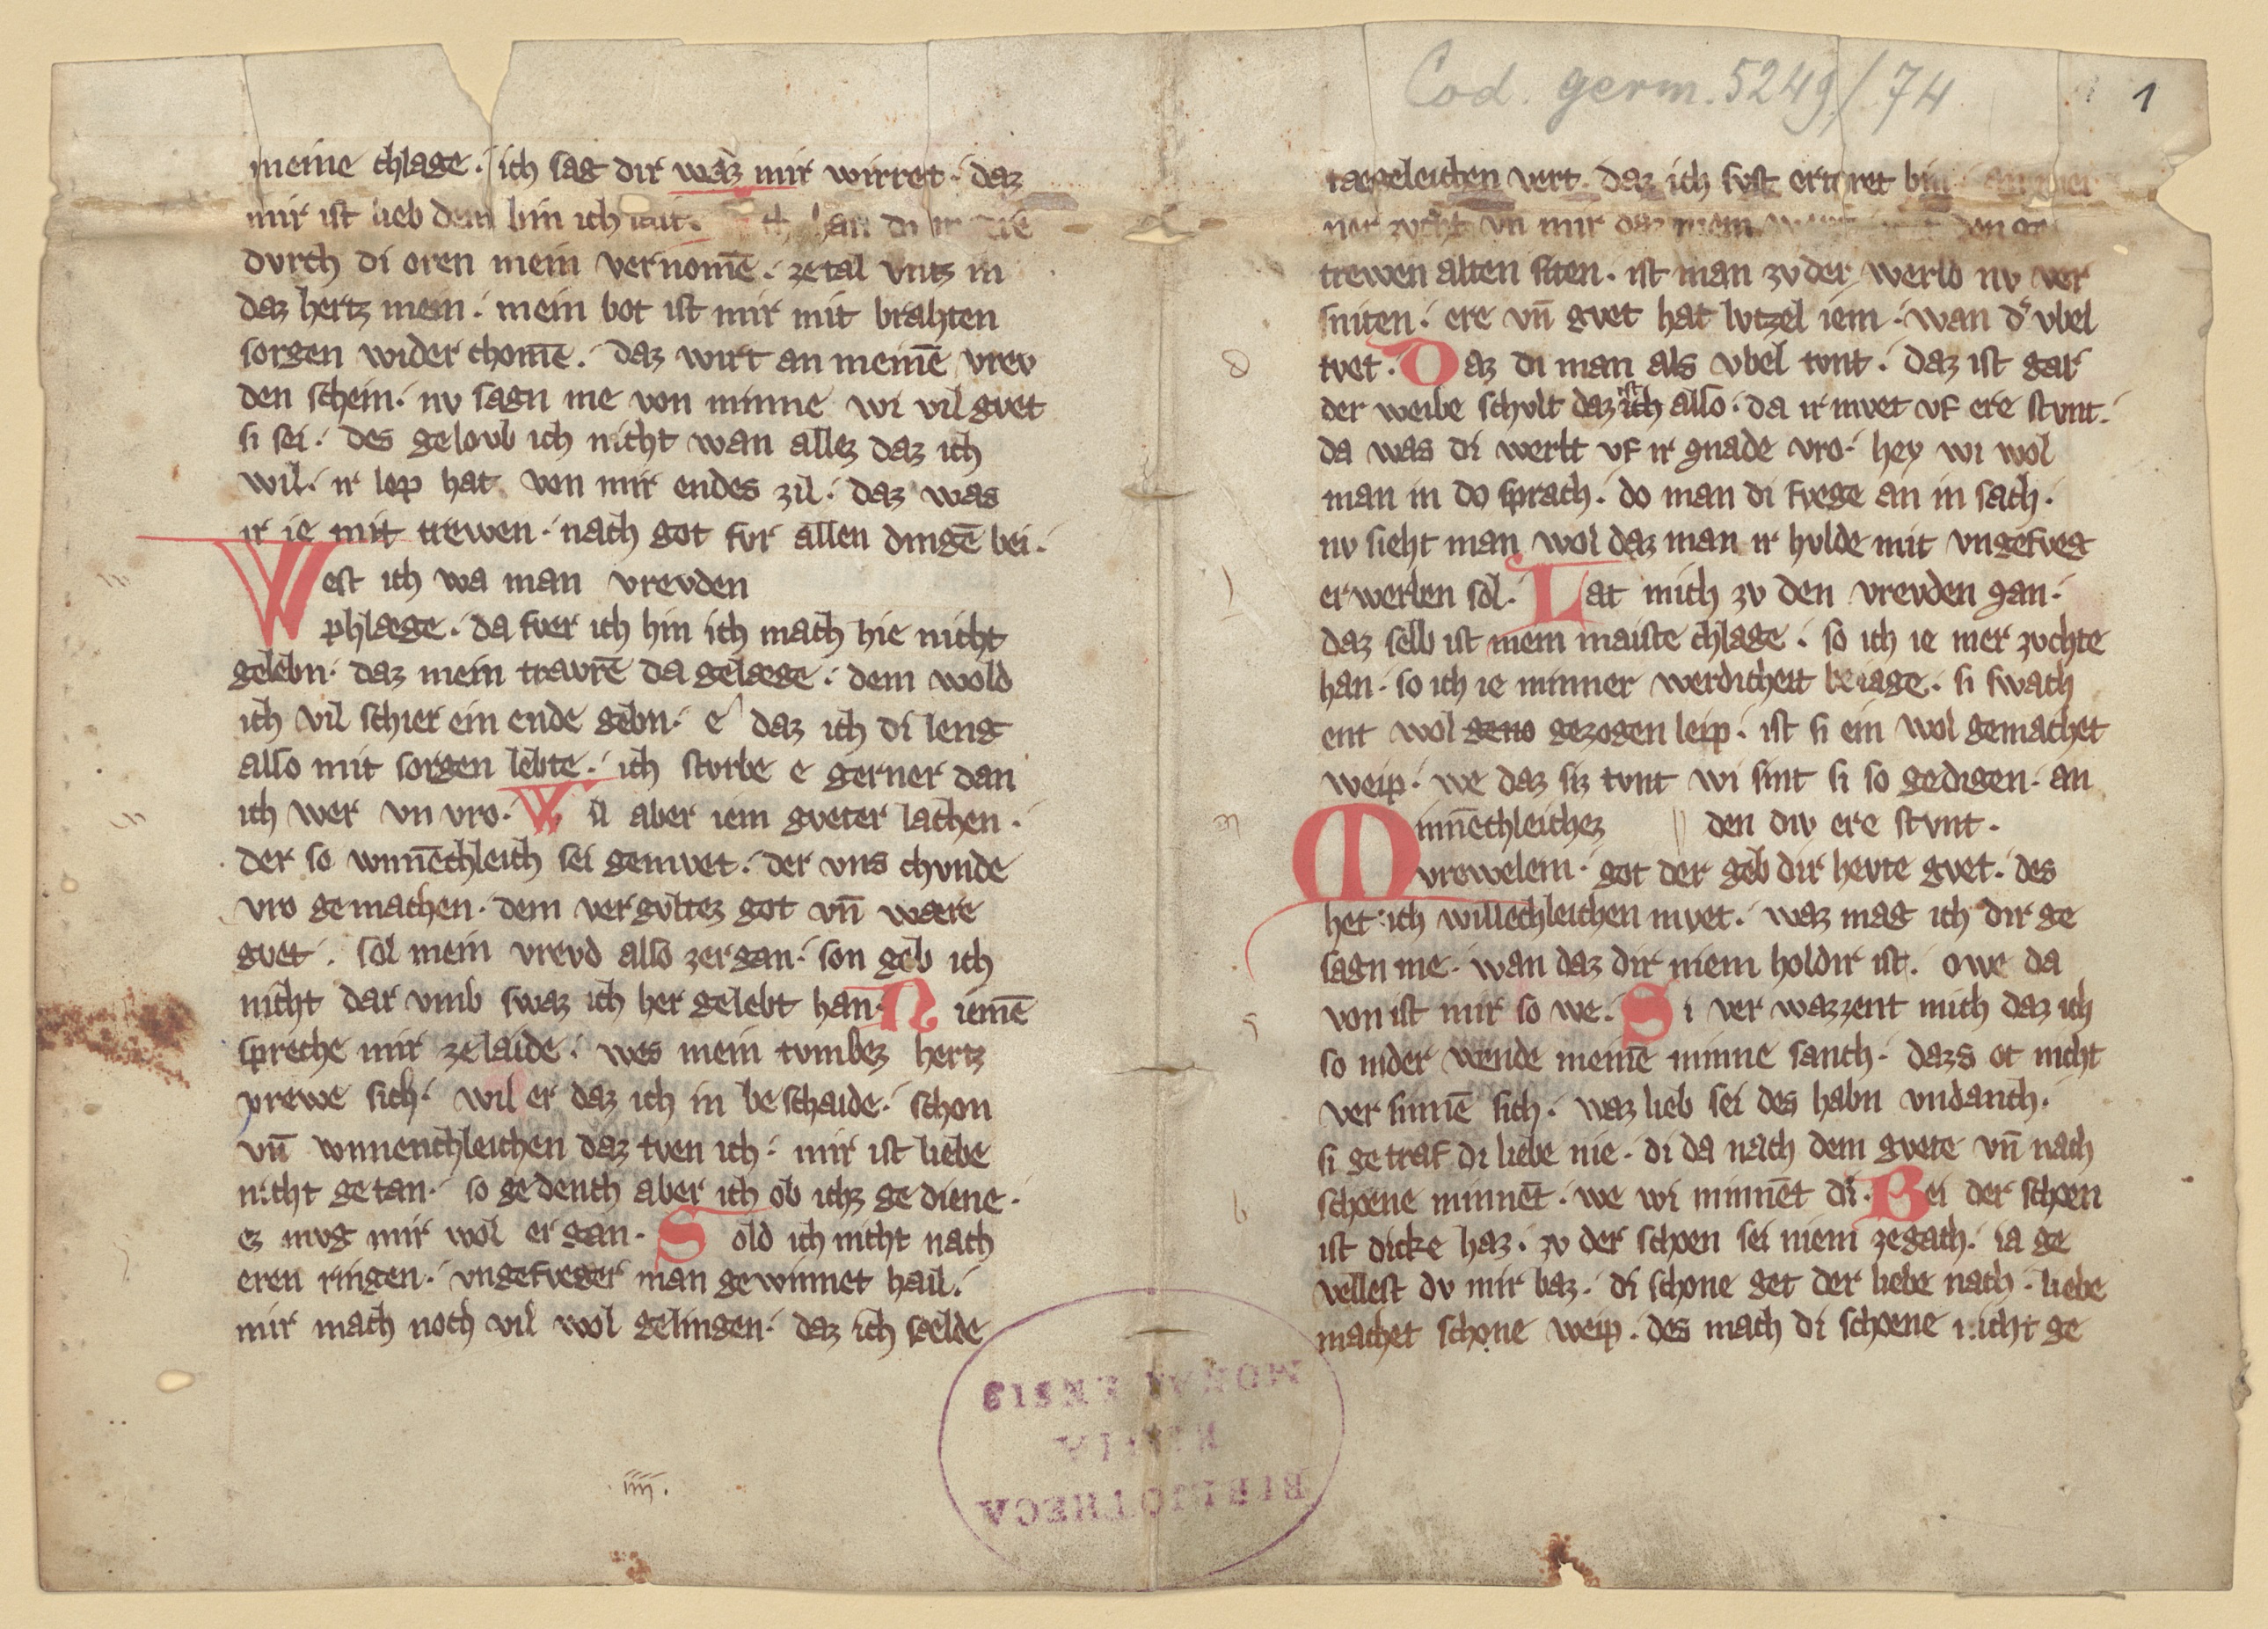 meine chlage · ich sag dir waz mir wirret · daz
mir ist lieb dem bin ich
dvrch di oren mein vernomē · zetal vntz in
daz hertz mein · mein bot ist mir mit brahten
sorgen wider chomē · daz wirt an meinē vrev
den schein · nv sagn me von minne wi vil gvet
si sei · des gelovb ich nicht wan allez daz ich
wil · ir lop hat von mir endes zil · daz was
ir ie mit trewen · nach got fvr allen dingē bei ·
West ich wa man vrevden
phlæge · da fver ich hin ich mach hie nicht
gelebn · daz mein travrē da gelæge · dem wold
ich vil schier ein ende gebn · e daz ich di leng
also mit sorgen lebte · ich stvrbe e gerner dan
ich wer vn vro · Wil aber iem gveter lachen ·
der so winnēchleich sei gemvet · der vns chvnde
vro gemachen · dem vergvltez got vn̄ wære
gvet · sol mein vrevd also zergan · son geb ich
nicht dar vmb swaz ich her gelebt han · Niemē
spreche mir zelaide · wes mein tvmbez hertz
vrewe sich · wil er daz ich in beschaide · schon
vn̄ winnenchleichen daz tven ich · mir ist liebe
nicht getan · so gedench aber ich ob ichz gediene ·
ez mvg mir wol ergan · Sold ich nicht nach
eren ringen · vngefveger man gewinnet hail ·
mir mach noch vil wol gelingen · daz ich sælde
·iiii·
Cod. germ. 5249/74
1
tægeleichen vert · daz ich svst ertoret bin
ner zvcht vn̄ mir daz niem den ge
trewen alten siten · ist man zv der werld nv ver
sniten · ere vn̄ gvet hat lvtzel iem · wan d' vbel
tvet · Daz di man als vbel tvnt · daz ist gar
der weibe schvlt daz ist ich also · da ir mvet vf ere stvnt ·
da was di werlt vf ir gnade vro · hey wi wol
man in do sprach · do man di fvege an in sach ·
nv sieht man wol daz man ir hvlde mit vngefveg
erwerben sol · Lat mich zv den vrevden gan ·
daz selb ist mein maiste chlage · so ich ie mer zvchte
han · so ich ie minner werdicheit beiage · si swach
ent wol geno gezogen leip · ist si ein wol gemachet
weip · we daz siz tvnt wi sint si so gedigen · an
Minnēchleichez den div ere stvnt ·
vrewelein · got der geb dir hevte gvet · des
het ich willēchleichen mvet · waz mag ich dir ge
sagn me · wan daz dir niem holdir ist · owe da
von ist mir so we · Si ver wazzent mich daz ich
so nider wende meinē minne sanch · dazs ot nicht
ver sinnē sich · waz lieb sei des habn vndanch ·
si getraf di liebe nie · di da nach dem gvete vn̄ nach
schoene minnēt · we wi minnēt di · Bei der schoen
ist dicke haz · zv der schoen sei niem zegach · ia ge
vellest dv mir baz · di schone get der liebe nach · liebe
machet schone weip · des mach di schoene nicht ge
BIBLIOTHECA
REGIA
MONACENSIS